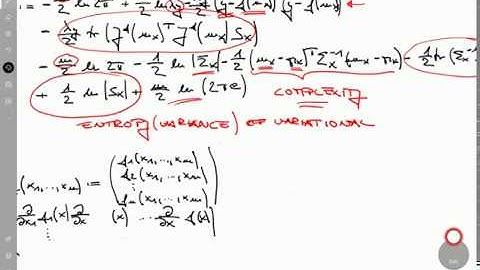 := - n/2 ln 2π + 1/2 ln λy - λy/2 (y - f(μx))ᵀ(y - f(μx)) ←
- λy/2 tr (Jᶠ(μx)ᵀ Jᶠ(μx) Sx)
- m/2 ln 2π - 1/2 ln |Σx| - 1/2 (μx - mx)ᵀ Σx⁻¹ (μx - mx) - 1/2 tr (Σx⁻¹
+ 1/2 ln |Sx| + m/2 ln (2πe) COMPLEXITY
ENTROPY (VARIANCE) OF VARIATIONAL
(x1,...,xm) := ( f1(x1,...,xm)
f2(x1,...,xm)
⋮
fn(x1,...,xm) )
∂/∂x1 f1(x) ∂/∂x (x) ... ∂/∂x f(x)
⋮